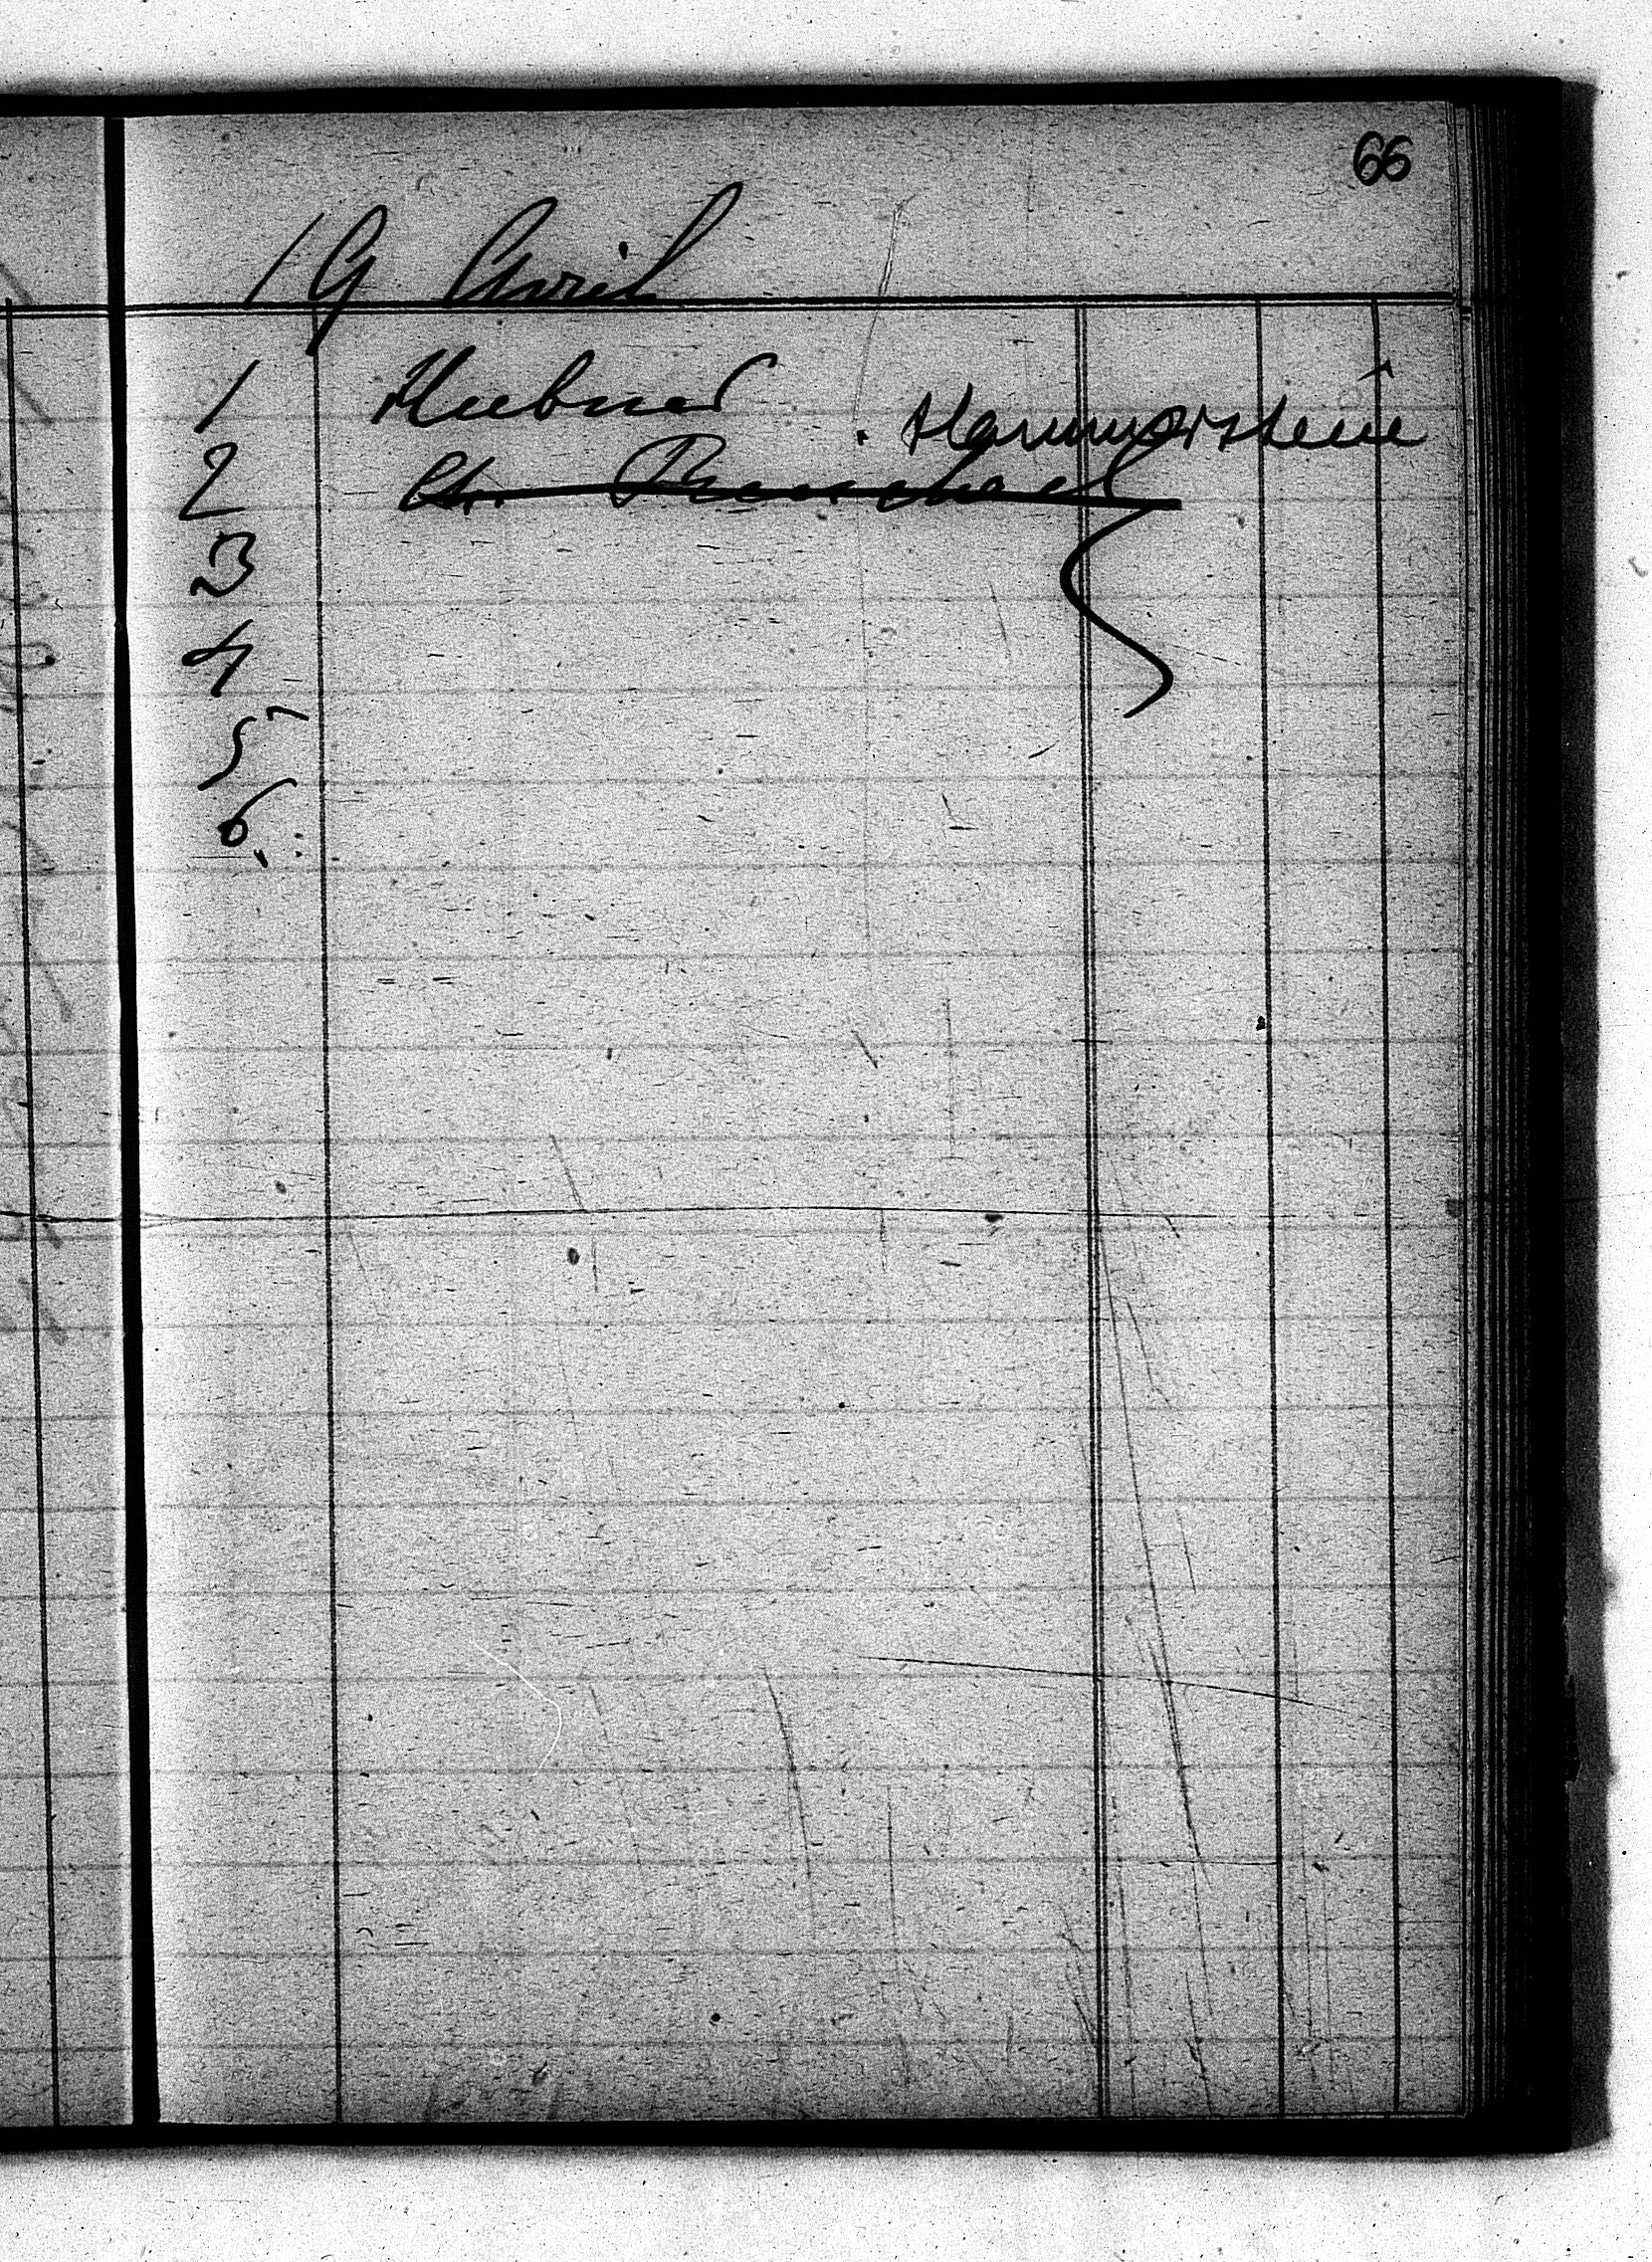 66
19 Avril
1 Huebner . Hammerstein
2
3
4
5
6